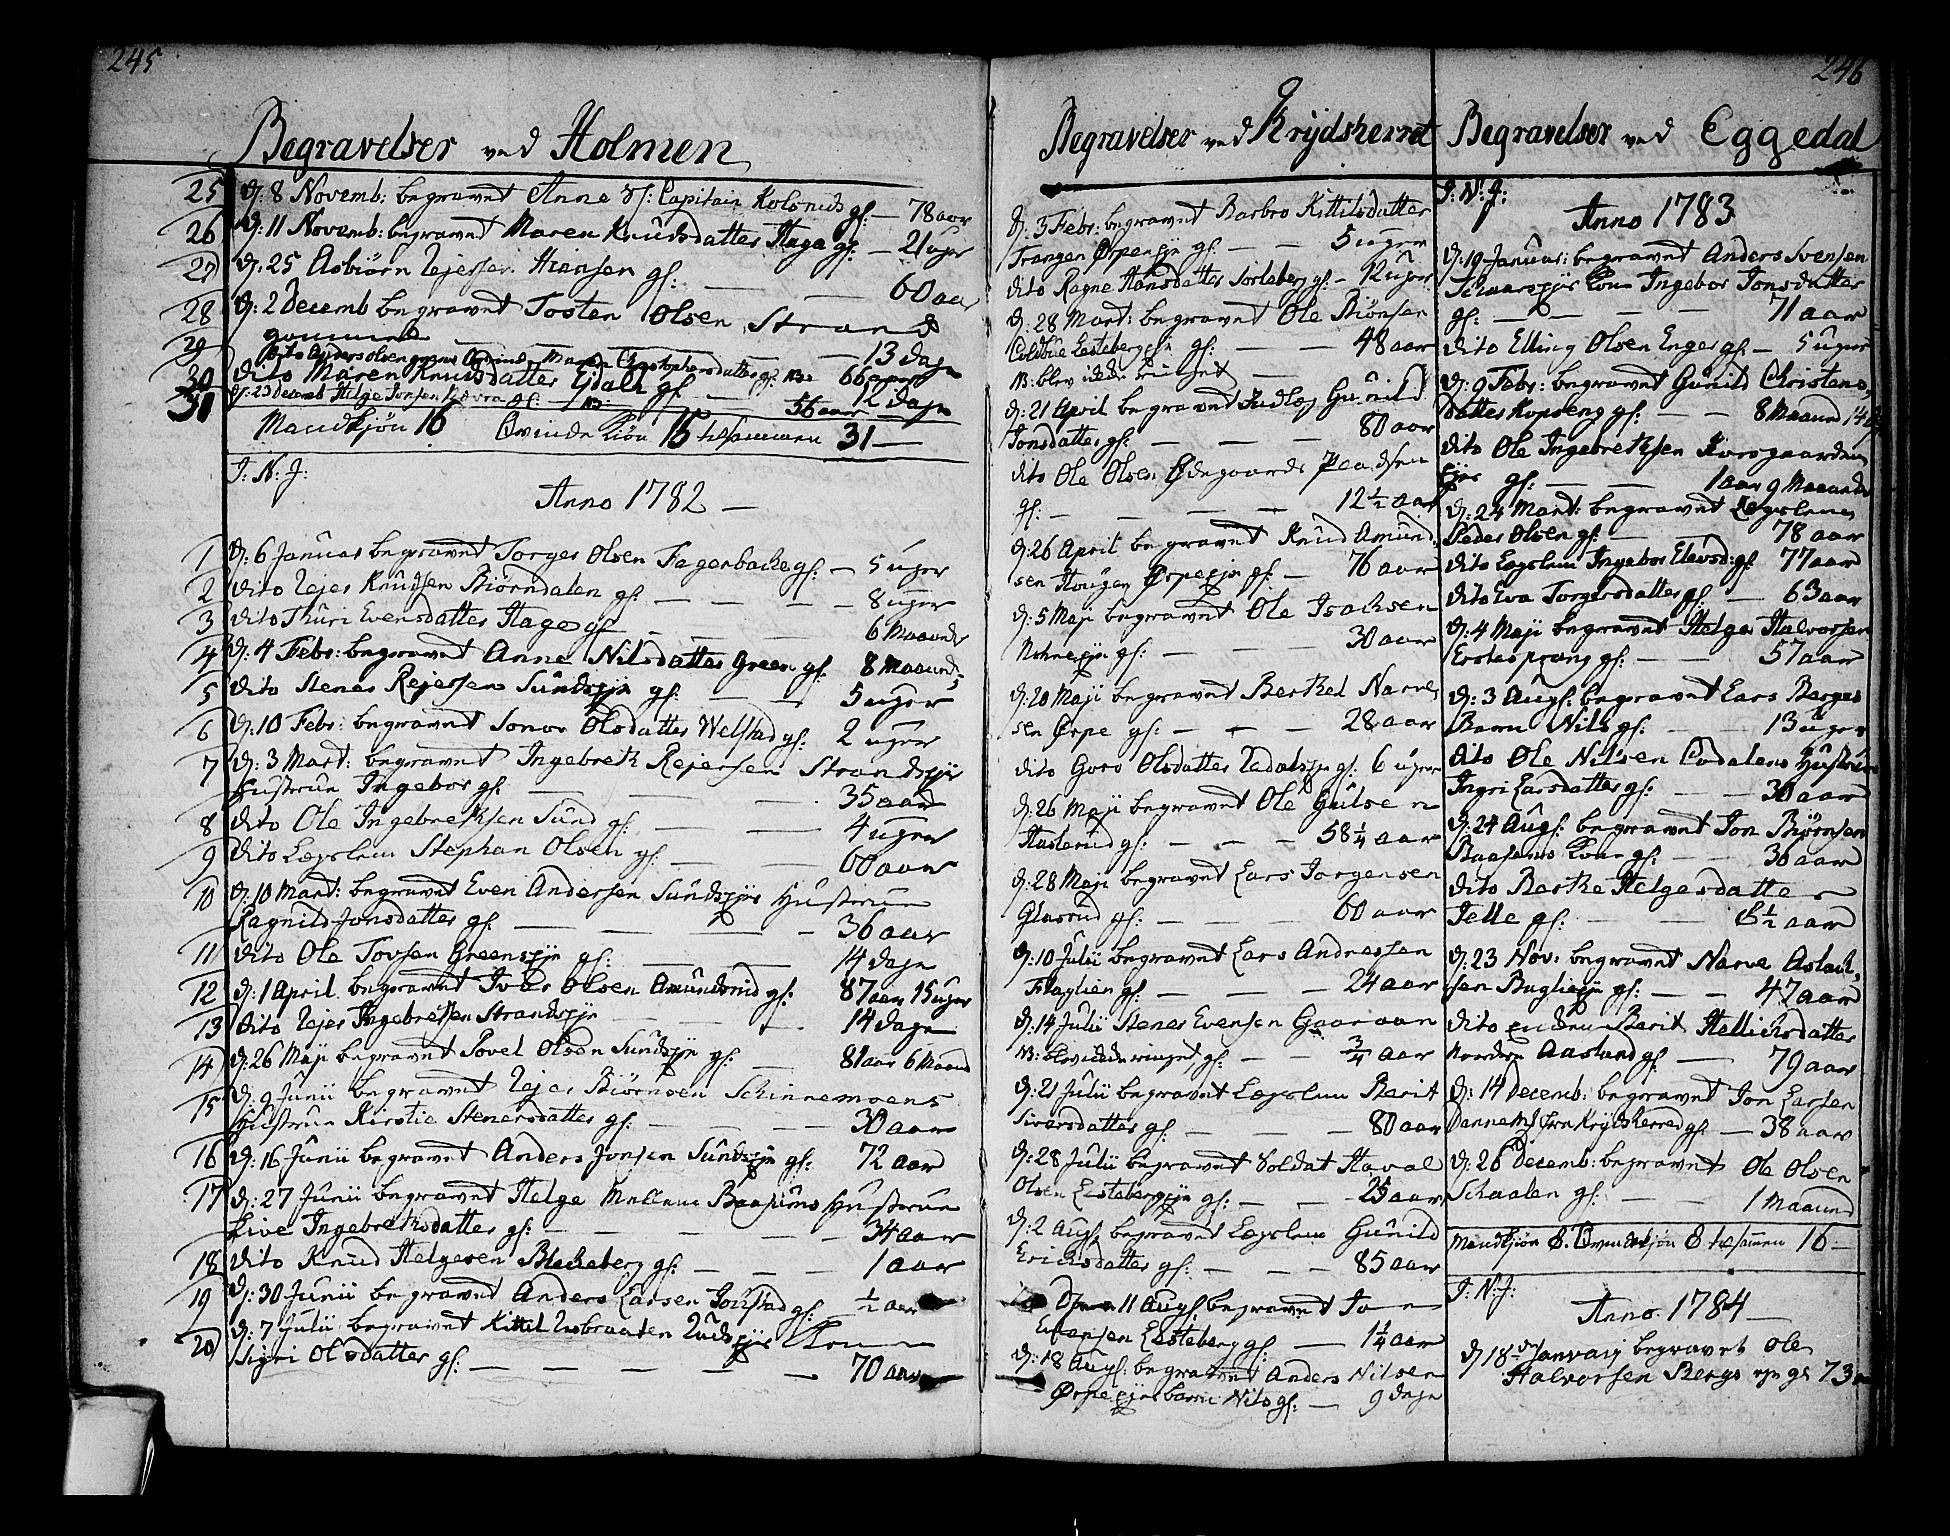 245
Begravelser ved Holmen
25 d: 8 Novemb: begravet Anne Sl: Capitain Kolsruds gl: — 78 aar
26 d: 11 Novemb: begravet Maren Knudsdatter Hage gl: — 21 uger
27 d: 25 Asbiørn Rejersen Hiansen gl: — — 60 aar
28 d: 2 Decemb begravet Tosten Olsen Strand
gammel — — 13 dage
29 dito Anders Olsen Qvinde Maren Christophersdatter gl: 66
30 dito Maren Knudsdatter Eidahl gl: — 12 dage
31 d: 23 Decemb Helge Jonsen gl: — 56 aar
Mandkjøn 16 Qvinde Kiøn 15 tilsammen 31 —
J: N: J:
Anno 1782 —
1 d: 6 Januar begravet Torger Olsen Fagerbache gl: — 5 uger
2 dito Rejer Knudsen Biørndalen gl: — — — 8 uger
3 dito Thuri Evensdatter Hage gl — — — 6 Maaneder
4 d: 4 Febr: begravet Anne Nilsdatter Green gl: 8 Maaneds
5 dito Stener Rejersen Sundseje gl: — — 5 uger
6 d: 10 Febr: begravet Gonor Olsdatter Welstad gl: 2 uger
7 d: 3 Mart: begravet Ingebreth Rejersen Strandsejes
Hustrue Ingebor gl: — — — 35 aar
8 dito Ole Ingebrethsen Sund gl: — — 4 uger
9 dito Legslem Stephan Olsen gl: — — 60 aar
10 d: 10 Mart: begravet Even Andersen Sundsejes Hustrue
Ragnild Jonsdatter gl: — — — 36 aar
11 dito Ole Tovsen Greenseje gl: — — 14 dage
12 d: 1 April begravet Iver Olsen Amundsrud gl: 87 aar 15 uger
13 dito Rejer Ingebretsen Strandseje — — 14 dage
14 d: 26 Maji begravet Povel Olsen Sundseje gl: — 81 aar 6 Maaned
15 d: 9 Junii begravet Rejer Biørnsen Schinnemoens
Hustrue Kirstie Stenersdatter gl: — — 30 aar
16 d: 16 Junii begravet Anders Jonsen Sundseje gl: 72 aar
17 d: 27 Junii begravet Helge Mellem Baasums Hustrue
Live Ingebrethsdatter gl: — — — 34 aar
18 dito Knud Helgesen Blekeberg gl: — — — 1 aar
19 d: 30 Junii begravet Anders Larsen Joustad gl: ½ aar
20 d: 7 Julii begravet Kittel Kone
Sigri Olsdatter gl: — — — — 70 aar
Begravelser ved Krydsherret
d: 3 Febr: begravet Barbro Kittilsdatter
Trangen Ørpeneje gl: — — 5 uger
dito Ragne Hansdatter Sorteberg gl: — 12 uger
d: 28 Mart: begravet Ole Biønsen
Coldbue Lesteberg eje gl: — — 48 aar
NB: blev idde ringet —
d: 21 April begravet Indlæg Gunild
Jonsdatter gl: — — — 80 aar
dito Ole Olsen Ødegaards
gl: — — — 12½ aar
d: 26 April begravet Knud Amund-
sen Hougen Ørpeeje gl: — 76 aar
d: 5 Maji begravet Ole Isachsen
gl: — — — 30 aar
d: 20 Maji begravet Berthel Narve-
sen Ørpe gl: — — — 28 aar
dito Goro Olsdatter gl: 6 uger
d: 26 Maji begravet Ole Gulsen
Haslerud gl: — — — 58¼ aar
d: 28 Maji begravet Lars Jorgensen
Glasrud gl: — — — 60 aar
d: 10 Julii begravet Lars Andresen
Flaglien gl: — — — 24 aar
d: 14 Julii Stener Evensen Gaaraan
NB: blev idde ringet, gl: — — ¾ aar
d: 21 Julii begravet Legslem Berit
Siversdatter gl: — — — 80 aar
d: 28 Julii begravet Soldat Haval
Olsen Lestebergeje gl: — — 25 aar
d: 2 Aug: begravet Legslem Gunild
Erichsdatter gl: — — — 85 aar
Den 11 Aug: begravet Jon
Evensen Lesteberg gl: — — 1¼ aar
d: 18 Aug: begravet Anders Nilsen
Ørpe ejes barn Nils gl: — 9 dage
246
Begravelser ved Eggedal
J: N: J:
Anno 1783
d: 19 Januar: begravet Anders Svensen
Kone Ingebor Jonsdatter
gl: — — — — 71 aar
dito Elling Olsen Enger gl: — 5 uger
d: 9 Febr: begravet Gunild Christens-
datter Kopseng gl: — — 8 Maaned 14 d
dito Ole Ingebrethsen Korsgaarden
ejes gl: — — 1 aar 9 Maaneder
d: 24 Mart: begravet Legslem
Peder Olsen gl: — — 78 aar
dito Legslem Ingebor Elevsd: gl: 77 aar
dito Eva Torgersdatter gl: — 63 aar
d: 4 Maji begravet Helge Halvorsen
Ersteprang gl: — — 57 aar
d: 3 Aug: begravet Lars Berges
Barn Nils gl: — — 13 uger
dito Ole Nilsen Hustrue
Ingri Larsdatter gl: — — 30 aar
d: 24 Aug: begravet Jon Biørnsen
Baasens Kone gl: — — 30 aar
dito Berthe Helgesdatter
Telle gl: — — 8½ aar
d: 23 Nov: begravet Narve Aslack-
sen Buglieeje gl: — — 47 aar
dito Enken Berit Hellichsdatter
Nordre Aasland gl: — 79 aar
d: 14 Decemb: begravet Jon Larsen
fra Krydsherred gl: — 38 aar
d: 26 Decemb: begravet Ole Olsen
Schaalen gl: — — 1 Maaned
Mandkjøn 8. Qvindekjøn 8 tilsammen 16 —
J: N: J:
Anno 1784 —
d 18de Januarij begravet Ole
Halvorsen Bergs eje gl 73